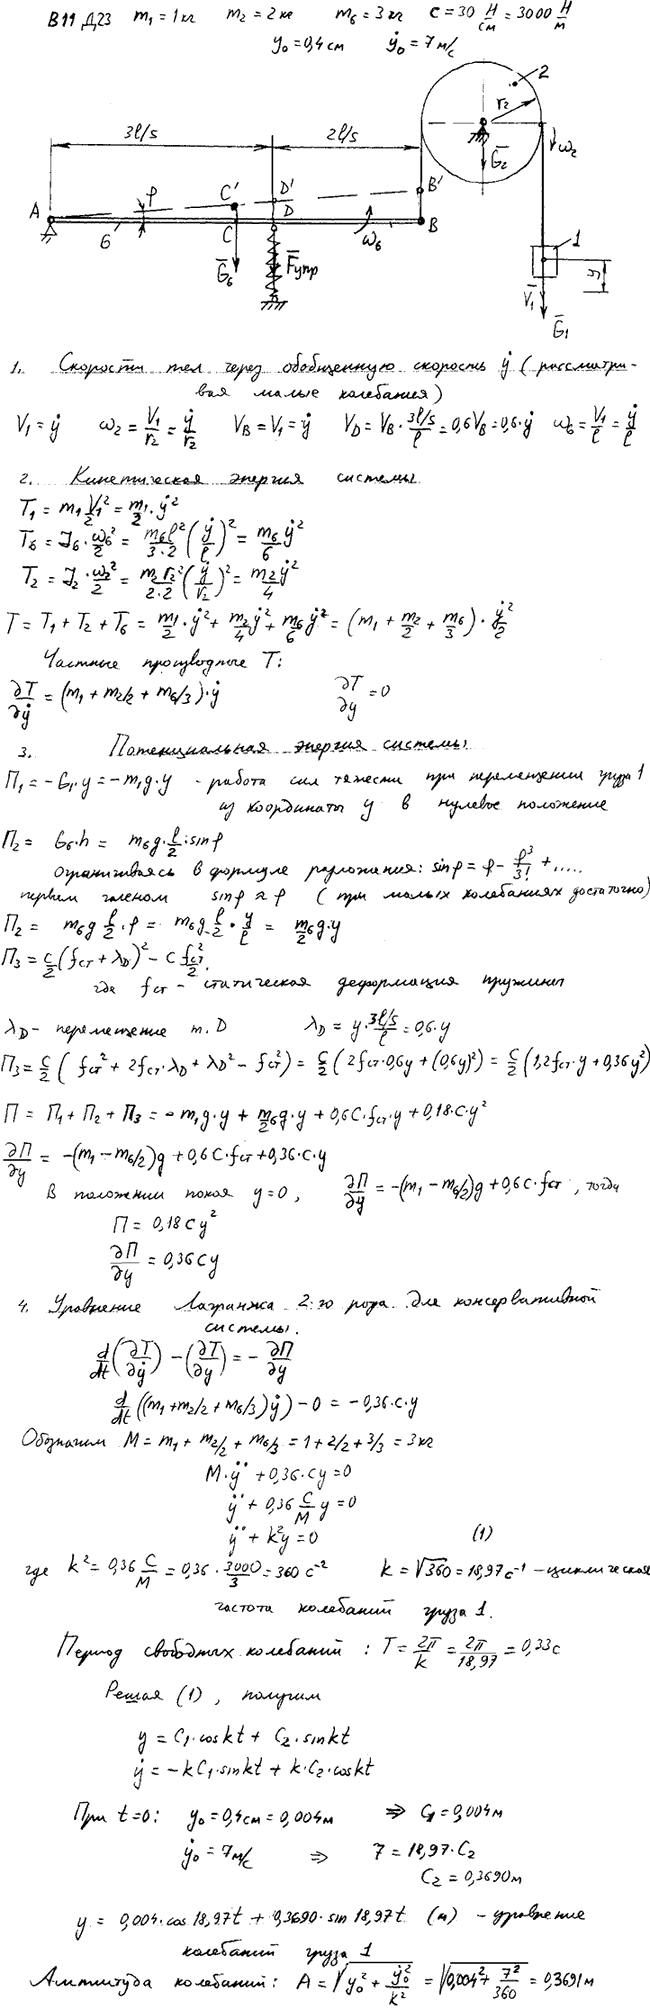 В11 Д23 m₁ = 1 кг m₂ = 2 кг m₆ = 3 кг c = 30 Н/см = 3000 Н/м
y₀ = 0,4 см ẏ₀ = 7 м/с
2
3l/5 2l/5 r₂
G₂ ω₂
φ C' D' B'
A D B
6 C ω₆ 1
G₆ Fупр y
V₁
G₁
1. Скорости тел через обобщенную скорость ẏ (рассматри-
вая малые колебания)
V₁ = ẏ ω₂ = V₁/r₂ = ẏ/r₂ V_B = V₁ = ẏ V_D = V_B · (3l/5)/l = 0,6V_B = 0,6·ẏ ω₆ = V₁/l = ẏ/l
2. Кинетическая энергия системы
T₁ = m₁V₁²/2 = m₁/2 · ẏ²
T₆ = J₆ · ω₆²/2 = m₆l²/(3·2) (ẏ/l)² = m₆/6 ẏ²
T₂ = J₂ · ω₂²/2 = m₂r₂²/(2·2) (ẏ/r₂)² = m₂/4 ẏ²
T = T₁ + T₂ + T₆ = m₁/2 · ẏ² + m₂/4 ẏ² + m₆/6 ẏ² = (m₁ + m₂/2 + m₆/3) · ẏ²/2
Частные производные T:
∂T/∂ẏ = (m₁ + m₂/2 + m₆/3)·ẏ ∂T/∂y = 0
3. Потенциальная энергия системы
П₁ = -G₁·y = -m₁g·y - работа сил тяжести при перемещении груза 1
из координаты y в нулевое положение
П₂ = G₆·h = m₆g·l/2·sinφ
ограничиваясь в формуле разложения: sinφ = φ - φ³/3! + .....
первым членом sinφ ≈ φ (при малых колебаниях достаточно)
П₂ = m₆g l/2·φ = m₆g l/2 · y/l = m₆/2 g·y
П₃ = c/2 (fст + λ_D)² - c fст²/2,
где fст - статическая деформация пружины
λ_D - перемещение т. D λ_D = y·(3l/5)/l = 0,6·y
П₃ = c/2 (fст² + 2fст·λ_D + λ_D² - fст²) = c/2 (2fст·0,6y + (0,6y)²) = c/2 (1,2fст·y + 0,36y²)
П = П₁ + П₂ + П₃ = -m₁g·y + m₆/2 g·y + 0,6c·fст·y + 0,18·c·y²
∂П/∂y = -(m₁ - m₆/2)g + 0,6c·fст + 0,36·c·y
В положении покоя y=0, ∂П/∂y = -(m₁ - m₆/2)g + 0,6c·fст, тогда
П = 0,18cy²
∂П/∂y = 0,36cy
4. Уравнение Лагранжа 2-го рода для консервативной
системы.
d/dt(∂T/∂ẏ) - (∂T/∂y) = - ∂П/∂y
d/dt((m₁+m₂/2 + m₆/3)ẏ) - 0 = -0,36·c·y
Обозначим M = m₁ + m₂/2 + m₆/3 = 1 + 2/2 + 3/3 = 3кг
M·ÿ + 0,36·cy = 0
ÿ + 0,36 c/M y = 0
ÿ + k²y = 0 (1)
где k² = 0,36 c/M = 0,36 · 3000/3 = 360 с⁻² k = √360 = 18,97 с⁻¹ - циклическая
частота колебаний груза 1.
Период свободных колебаний: T = 2π/k = 2π/18,97 = 0,33с
Решая (1), получим
y = C₁·coskt + C₂·sinkt
ẏ = -kC₁·sinkt + k·C₂·coskt
При t=0: y₀ = 0,4см = 0,004м => C₁ = 0,004м
ẏ₀ = 7м/с => 7 = 18,97·C₂
C₂ = 0,3690м
y = 0,004·cos 18,97t + 0,3690·sin 18,97t (м) - уравнение
колебаний груза 1
Амплитуда колебаний: A = √(y₀² + ẏ₀²/k²) = √(0,004² + 7²/360) = 0,3691м